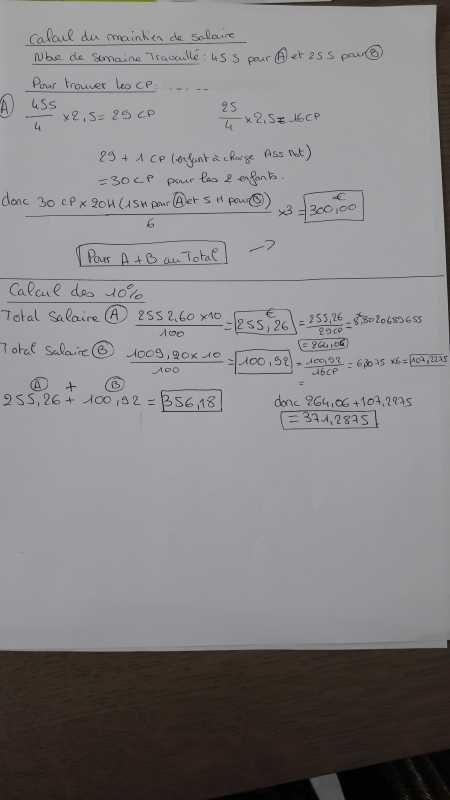 Calcul du maintien de salaire
Nbre de Semaine Travaillé : 45 S pour A et 25 S pour B
Pour trouver les CP : ......
A 45S/4 x 2,5 = 29 CP
25/4 x 2,5 = 16 CP
29 + 1 CP (enfant à charge Ass Mat)
= 30 CP pour les 2 enfants.
donc 30 CP x 20H (15H pour A et 5 H pour B) / 6 x 3 = 300,00 €
Pour A + B au Total
Calcul des 10%
Total Salaire A 2552,60 x 10 / 100 = 255,26 € = 255,26 / 29 CP = 8,8020689655
= 264,06
Total Salaire B 1009,20 x 10 / 100 = 100,92 = 100,92 / 16 CP = 6,3075 x 6 = 107,2275
=
A + B
255,26 + 100,92 = 356,18
donc 264,06 + 107,2275
= 371,2875